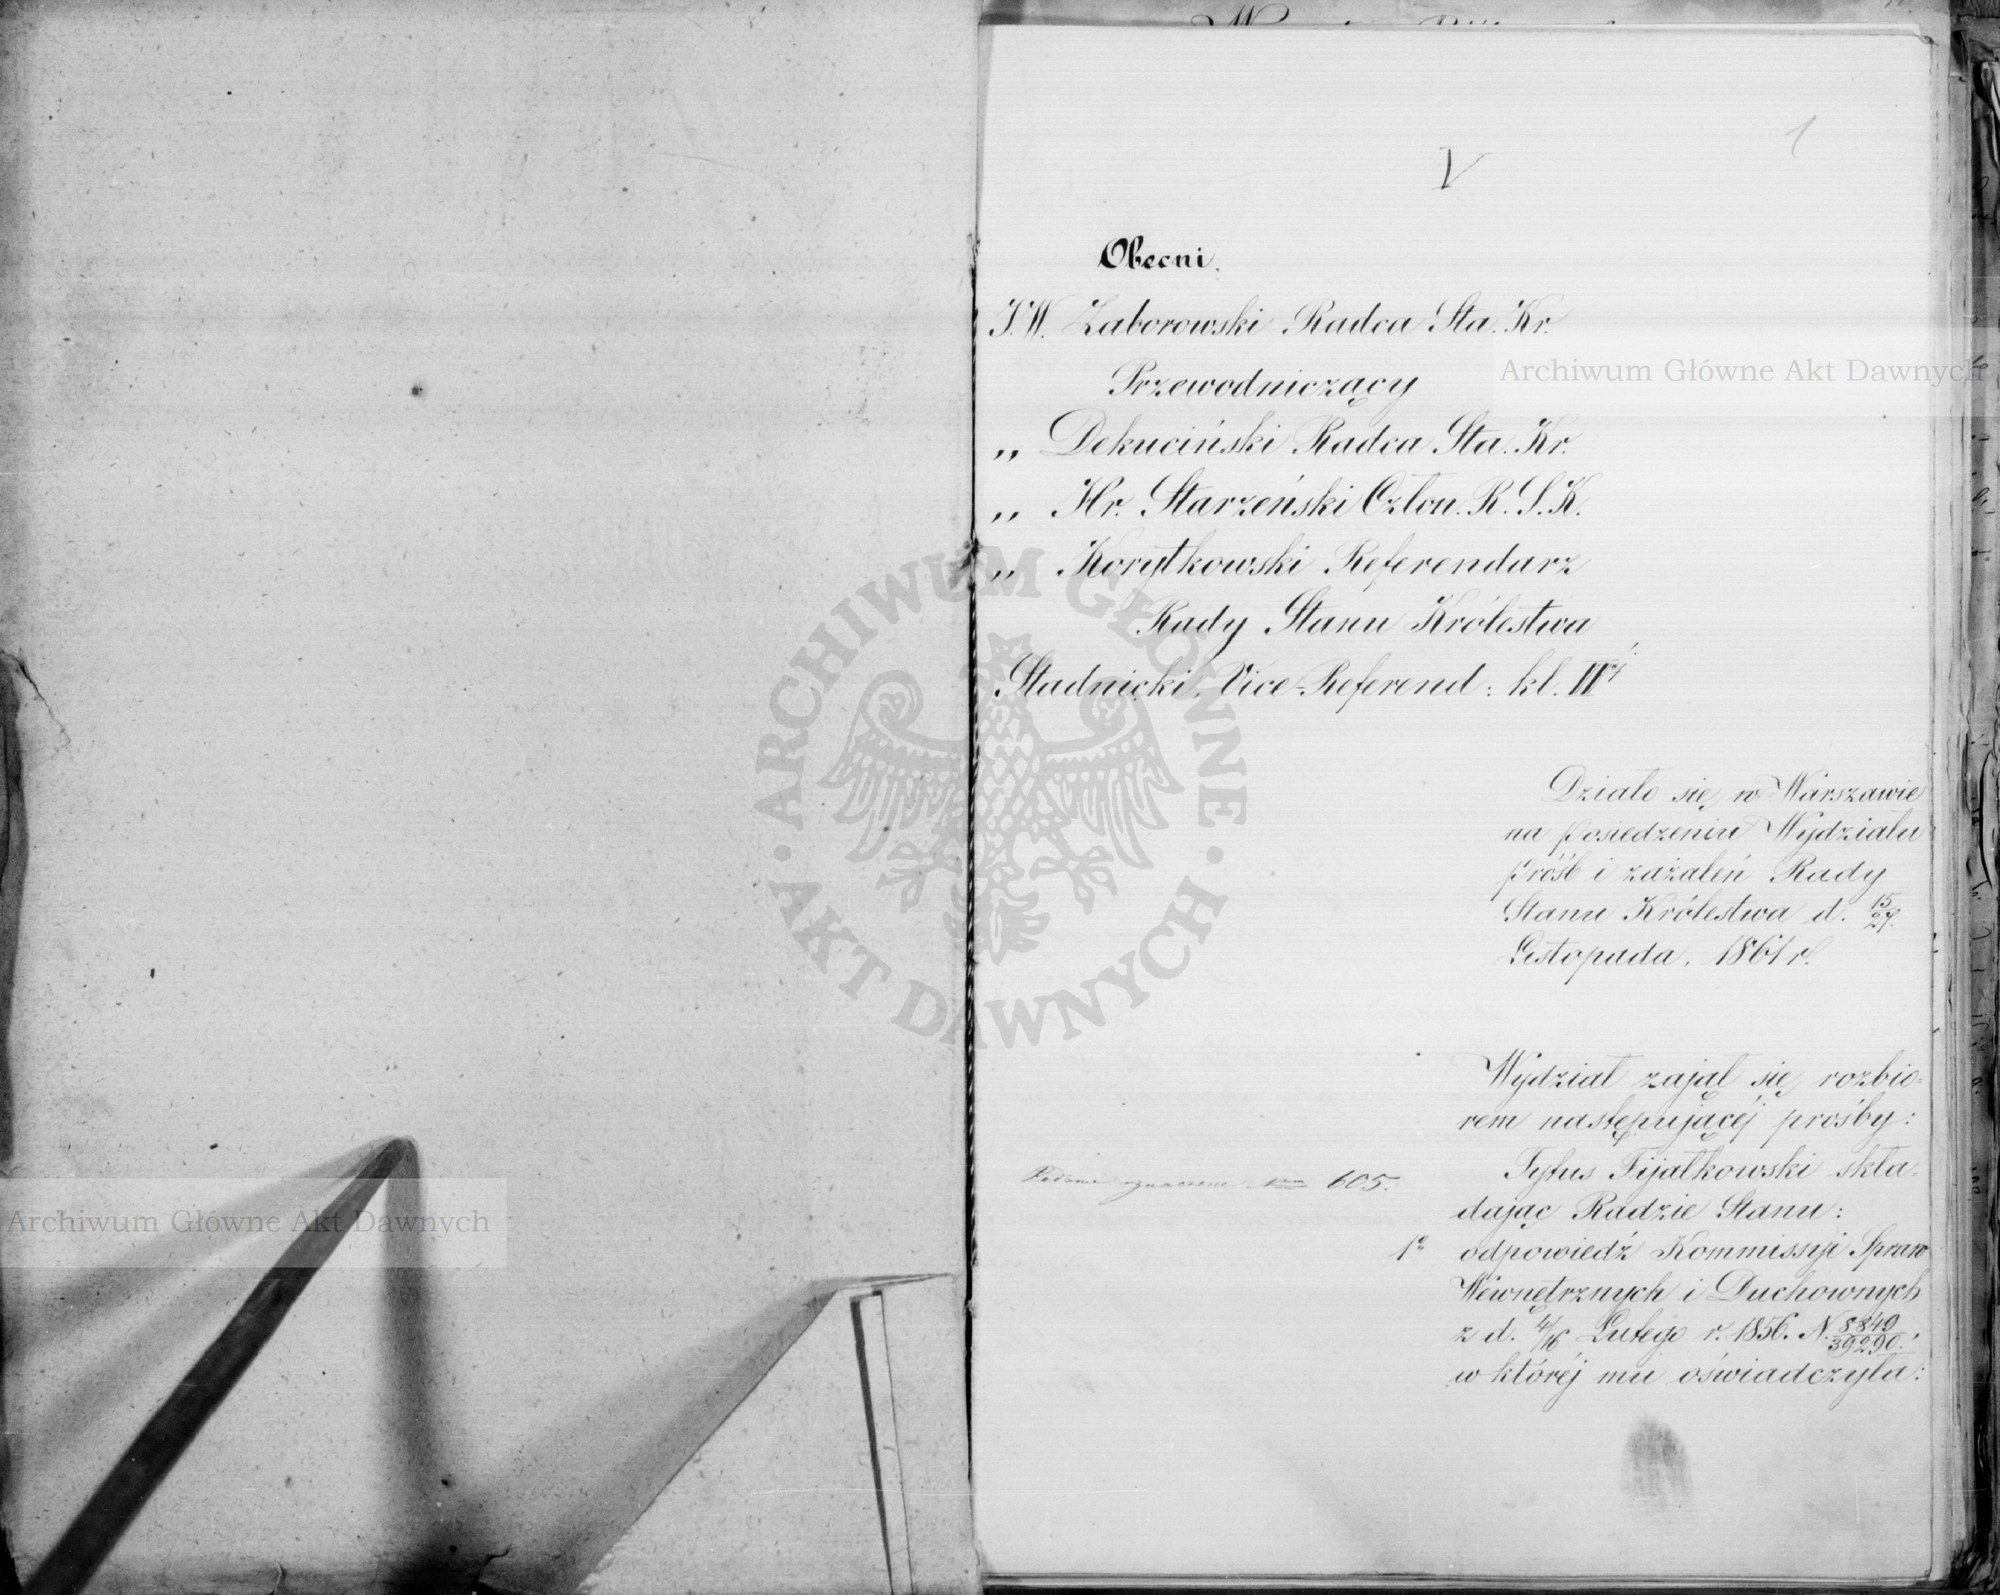 1
V
Obecni.
J.W. Zaborowski Radca Sta. Kr.
Przewodniczący
„ Dekuciński Radca Sta. Kr.
„ Hr. Starzeński Człon. R. S. K.
„ Korytkowski Referendarz
Rady Stanu Królestwa
Stadnicki, Vice-Referend: kl. IIéj
Działo się w Warszawie
na posiedzeniu Wydziału
próśb i zażaleń Rady
Stanu Królestwa d. 15/27.
Listopada, 1861 r.
Wydział zajął się rozbio-
rem następującéj prośby:
Podanie oznaczone Nrem 605.
Tytus Fijałkowski skła-
dając Radzie Stanu:
1o odpowiedź Kommissyi Spraw
Wewnętrznych i Duchownych
z d. 4/16 Lutego r. 1856. N. 8849/39290.
w któréj mu oświadczyła:
Archiwum Główne Akt Dawnych
Archiwum Główne Akt Dawnych
ARCHIWUM GŁÓWNE
AKT DAWNYCH